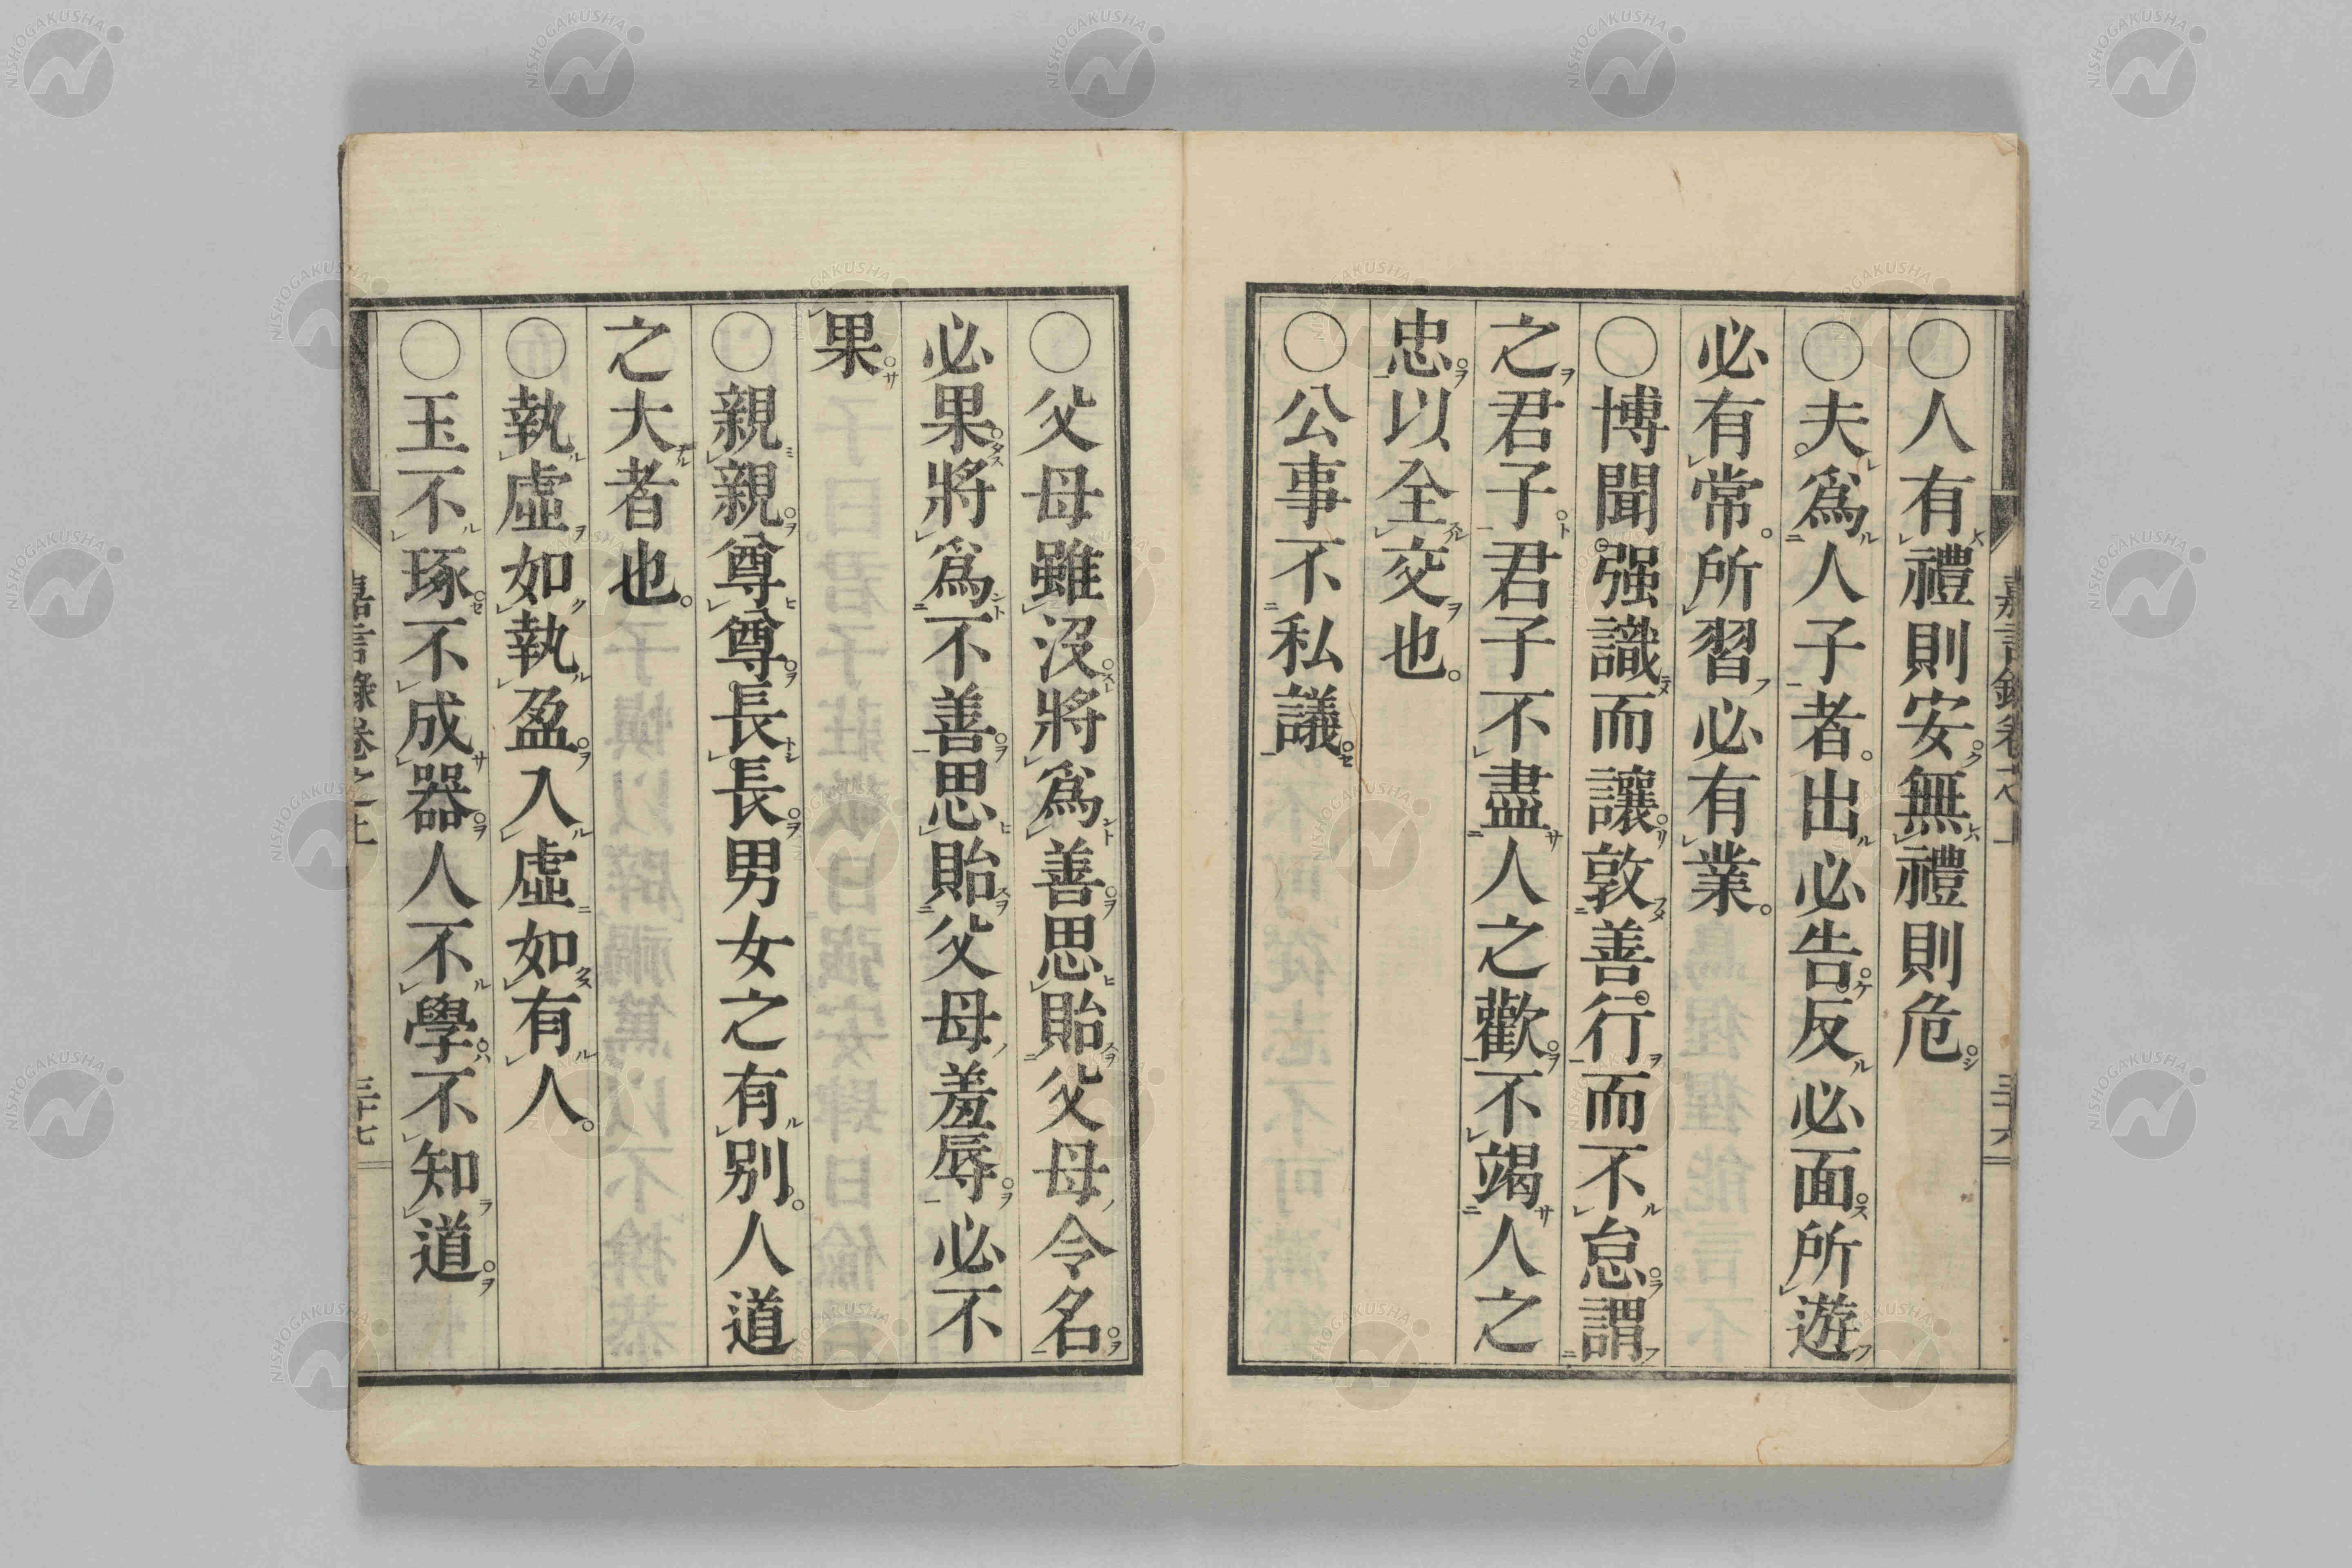 ○人有禮則安無禮則危
○夫爲人子者出必告反必面所遊
必有常所習必有業
○博聞强識而讓敦善行而不怠謂
之君子君子不盡人之歡不竭人之
忠以全交也
○公事不私議
○父母雖沒將爲善思貽父母令名
必果將爲不善思貽父母羞辱必不
果
○親親尊尊長長男女之有別人道
之大者也
○執虛如執盈入虛如有人
○玉不琢不成器人不學不知道
嘉言錄卷之上
三十七
NISHOGAKUSHA